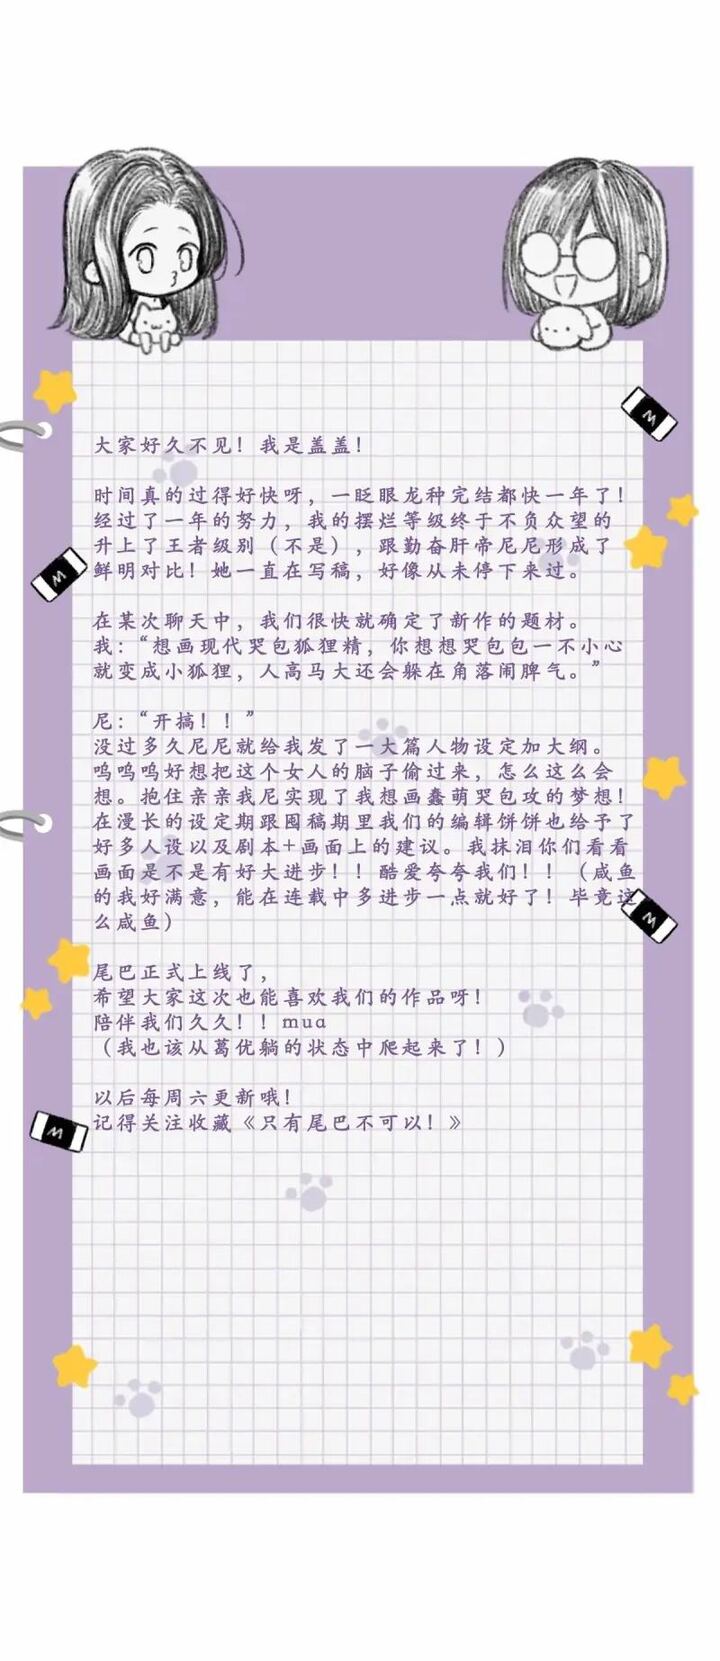 大家好久不见！我是盖盖！
时间真的过得好快呀，一眨眼龙种完结都快一年了！
经过了一年的努力，我的摆烂等级终于不负众望的
升上了王者级别（不是），跟勤奋肝帝尼尼形成了
鲜明对比！她一直在写稿，好像从未停下来过。
在某次聊天中，我们很快就确定了新作的题材。
我：“想画现代哭包狐狸精，你想想哭包包一不小心
就变成小狐狸，人高马大还会躲在角落闹脾气。”
尼：“开搞！！”
没过多久尼尼就给我发了一大篇人物设定加大纲。
呜呜呜好想把这个女人的脑子偷过来，怎么这么会
想。抱住亲亲我尼实现了我想画蠢萌哭包攻的梦想！
在漫长的设定期跟囤稿期里我们的编辑饼饼也给予了
好多人设以及剧本+画面上的建议。我抹泪你们看看
画面是不是有好大进步！！酷爱夸夸我们！！（咸鱼
的我好满意，能在连载中多进步一点就好了！毕竟这
么咸鱼）
尾巴正式上线了，
希望大家这次也能喜欢我们的作品呀！
陪伴我们久久！！mua
（我也该从葛优躺的状态中爬起来了！）
以后每周六更新哦！
记得关注收藏《只有尾巴不可以！》
W
W
W
W